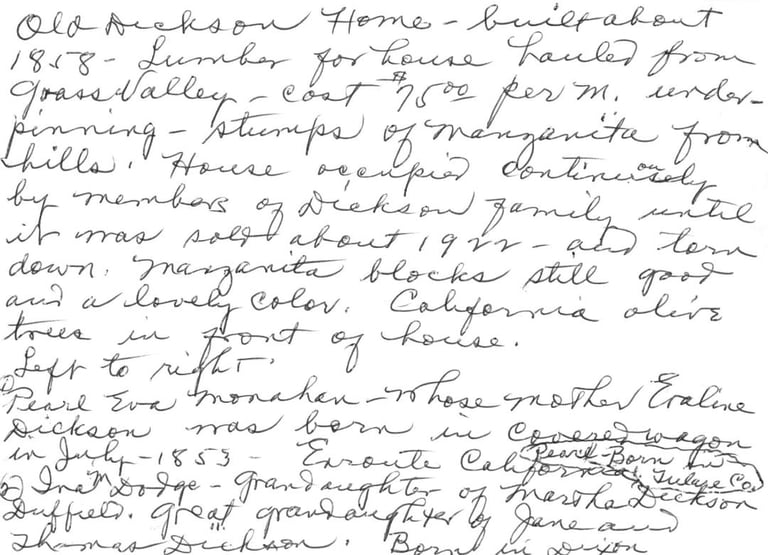 Old Dickson Home - built about
1858 - Lumber for house hauled from
Grass Valley - cost $75.00 per M. under-
pinning - stumps of manzanita from
hills. House occupied continuously
by members of Dickson family until
it was sold about 1922 - and torn
down. Manzanita blocks still good
and a lovely color. California olive
trees in front of house.
Left to right.
1) Pearl Eva Monahan - whose mother Evaline
Dickson was born in covered wagon
in July - 1853 - Enroute California.
Pearl - Born in
Tulare Co.
2) Ina M Dodge - Grandaughter of Martha Dickson
Duffield. Great grandaughter of Jane and
Thomas Dickson. Born in Dixon